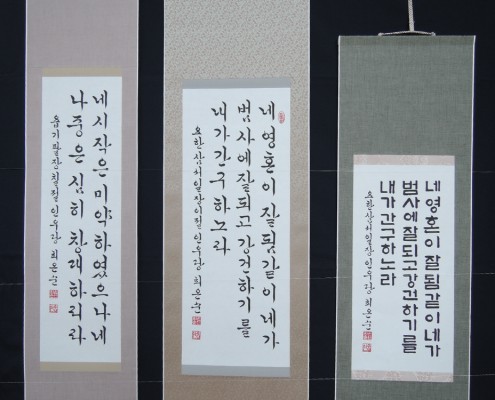 네 시작은 미약하였으나 네
나중은 심히 창대하리라
욥기 팔장 칠절 인우당 최은순
네 영혼이 잘됨같이 네가
범사에 잘되고 강건하기를
내가 간구하노라
요한삼서 일장 이절 인우당 최은순
네 영혼이 잘됨같이 네가
범사에 잘되고 강건하기를
내가 간구하노라
요한삼서 일장 인우당 최은순